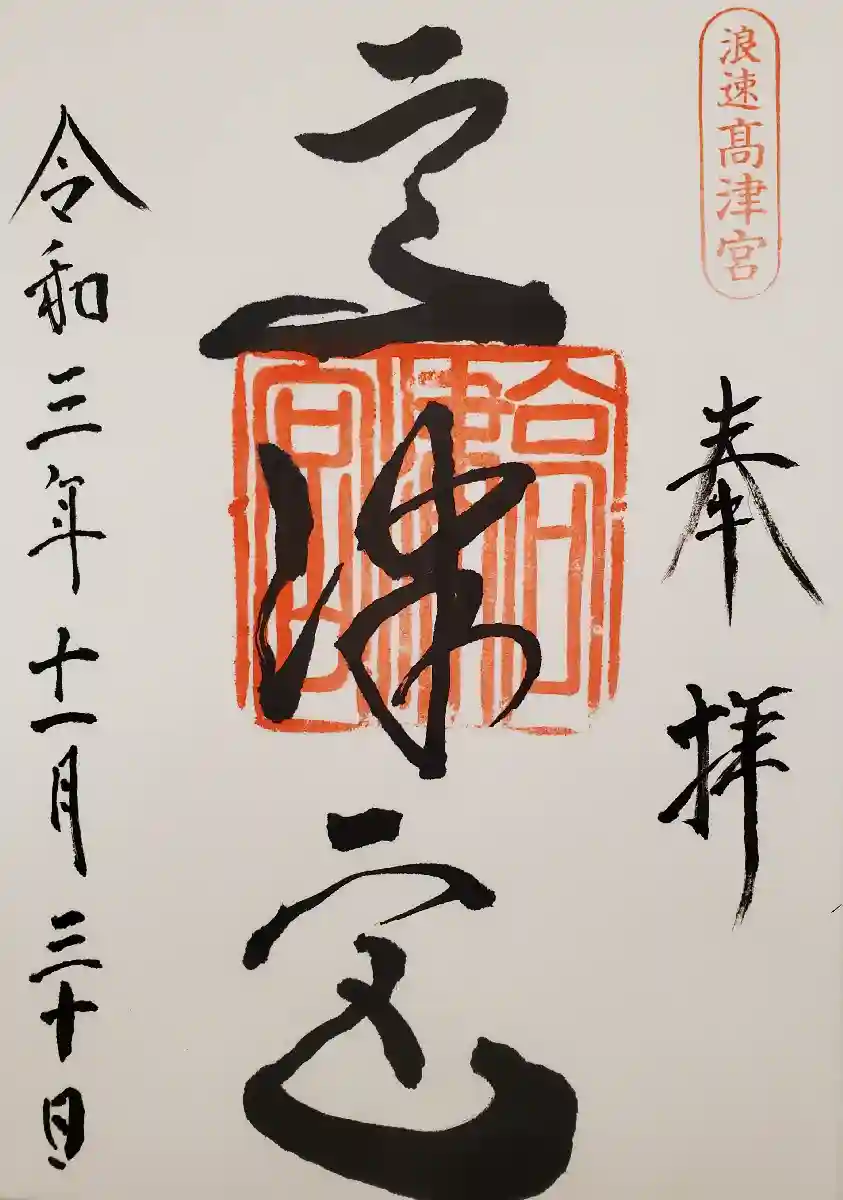 浪速髙津宮
奉拝
高津宮
高津宮
令和三年十一月三十日